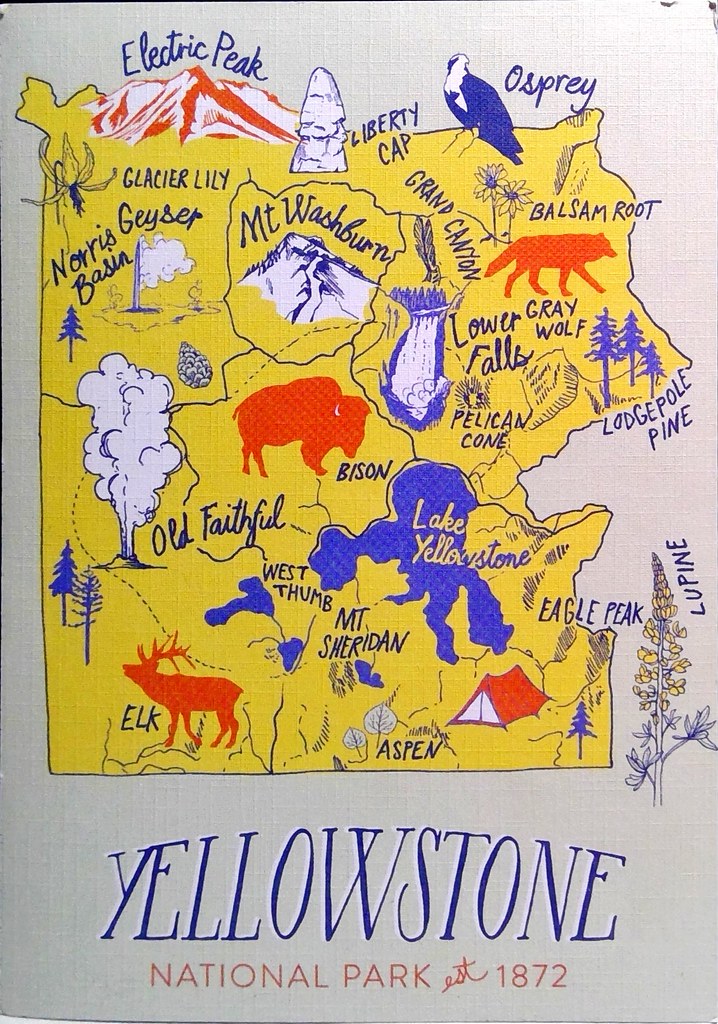 Electric Peak
Osprey
LIBERTY
CAP
GLACIER LILY
GRAND CANYON
BALSAM ROOT
Norris Geyser
Basin
Mt Washburn
Lower
Falls
GRAY
WOLF
LODGEPOLE
PINE
PELICAN
CONE
BISON
Old Faithful
Lake
Yellowstone
WEST
THUMB
MT
SHERIDAN
EAGLE PEAK
LUPINE
ELK
ASPEN
YELLOWSTONE
NATIONAL PARK est 1872